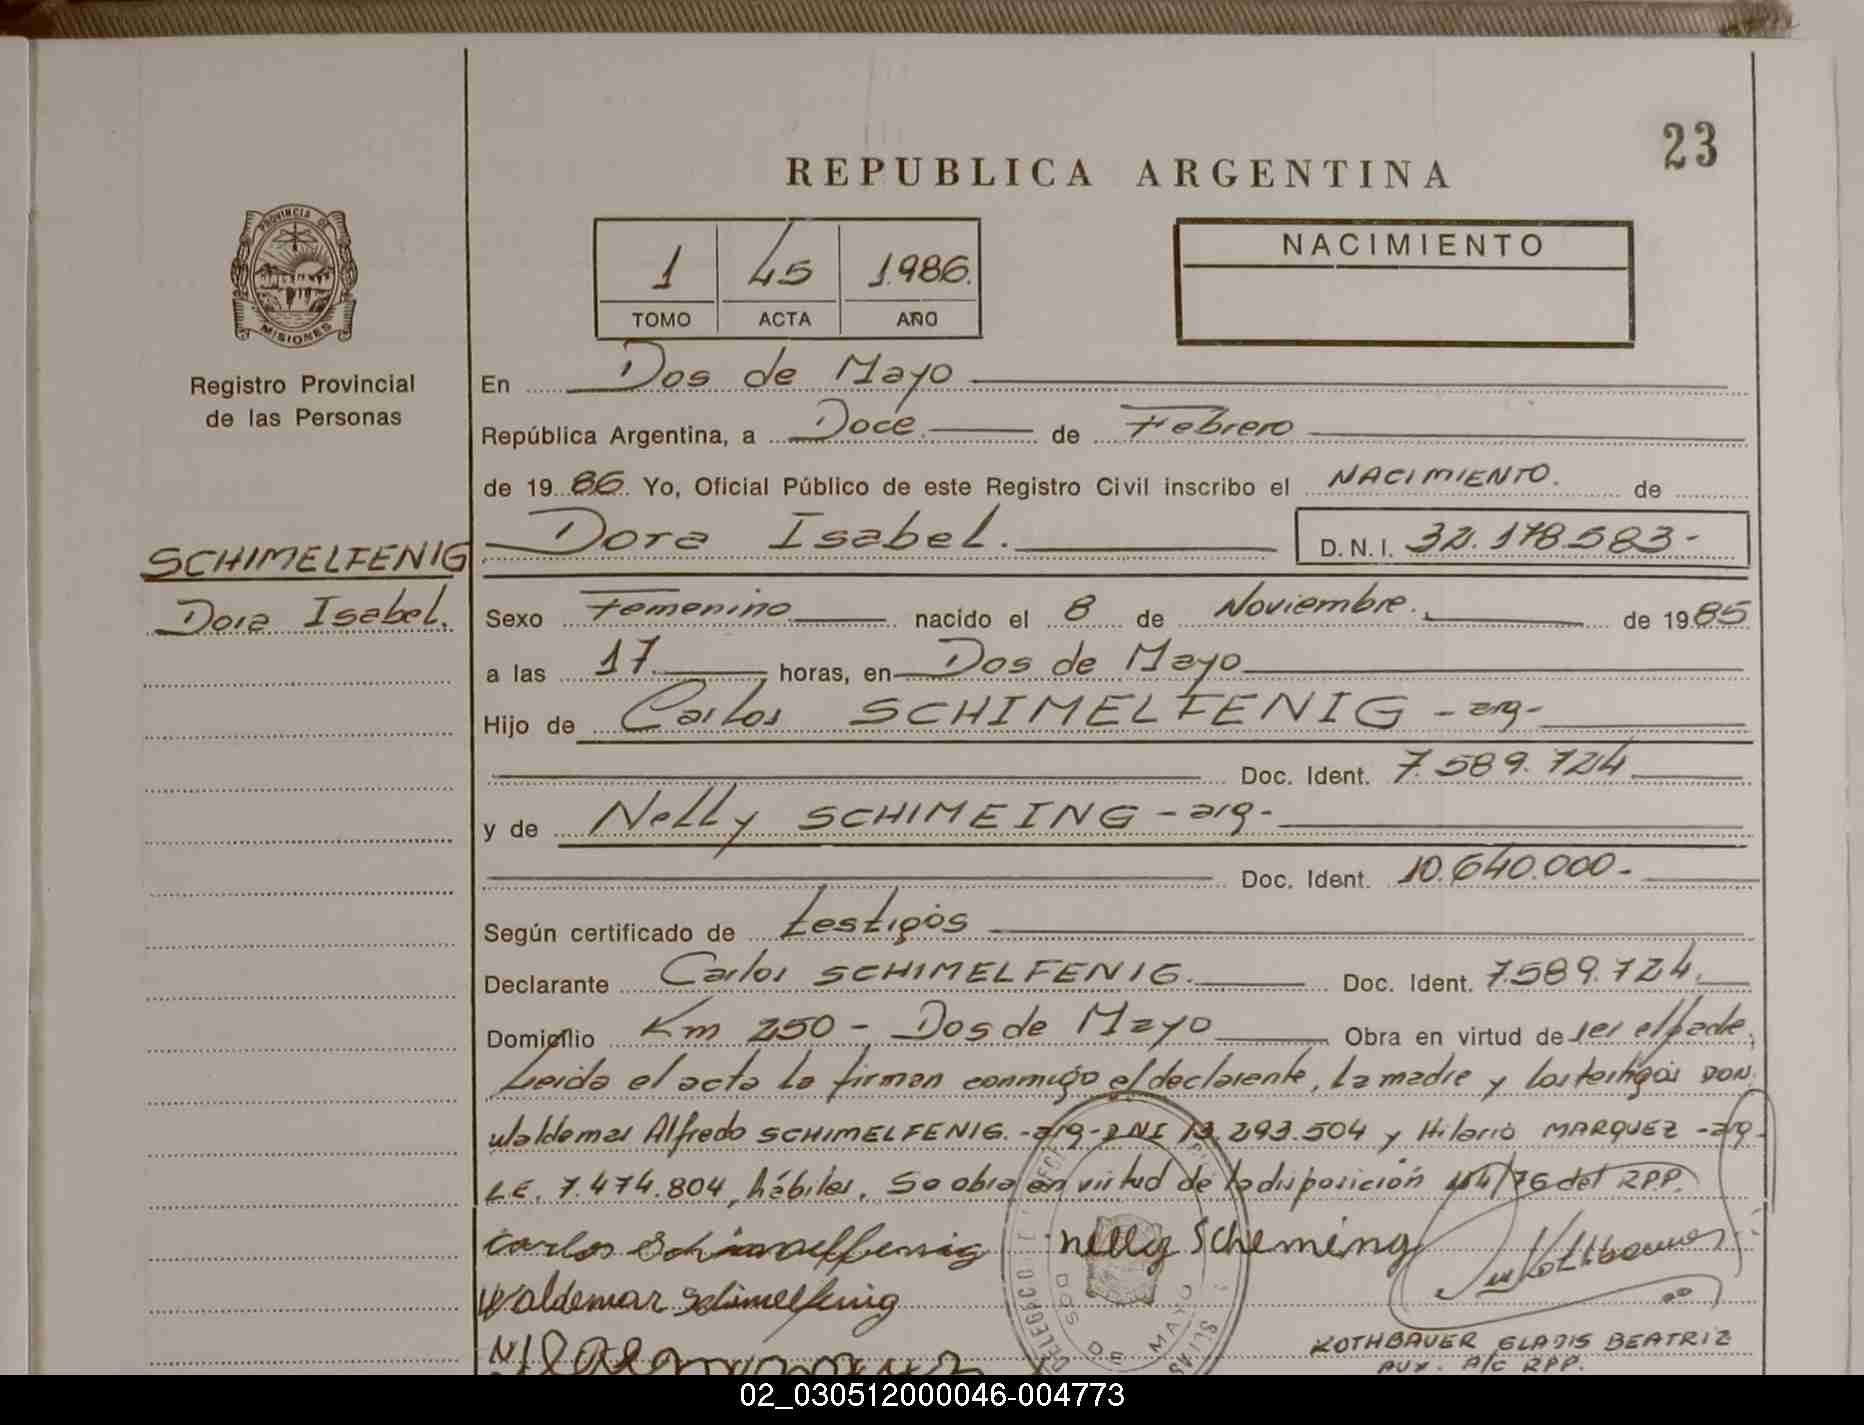 23
REPUBLICA ARGENTINA
1 45 1.986.
TOMO ACTA AÑO
NACIMIENTO
PROVINCIA DE
MISIONES
Registro Provincial
de las Personas
SCHIMELFENIG
Dora Isabel.
En Dos de Mayo
República Argentina, a Doce de Febrero
de 19 86 Yo, Oficial Público de este Registro Civil inscribo el NACIMIENTO. de
Dora Isabel. D.N.I. 32.178.583-
Sexo Femenino nacido el 8 de Noviembre. de 1985
a las 17 horas, en Dos de Mayo
Hijo de Carlos SCHIMELFENIG -arg-
Doc. Ident. 7.589.724
y de Nelly SCHIMEING -arg-
Doc. Ident. 10.640.000-
Según certificado de testigos
Declarante Carlos SCHIMELFENIG. Doc. Ident. 7.589.724.
Domicilio Km 250 - Dos de Mayo Obra en virtud de ser el padre.
Leida el acta la firman conmigo el declarante, la madre y los testigos DON
Waldemar Alfredo SCHIMELFENIG.-arg-DNI 13.293.504 y Hilario MARQUEZ -arg-
L.E. 7.474.804, hábiles. Se obra en virtud de la disposición 154/76 del R.P.P.
Carlos nelly Scheming
Waldemar Schimelfenig
DOS DE MAYO
KOTHBAUER GLADIS BEATRIZ
AUX. A/C RPP.
02_030512000046-004773